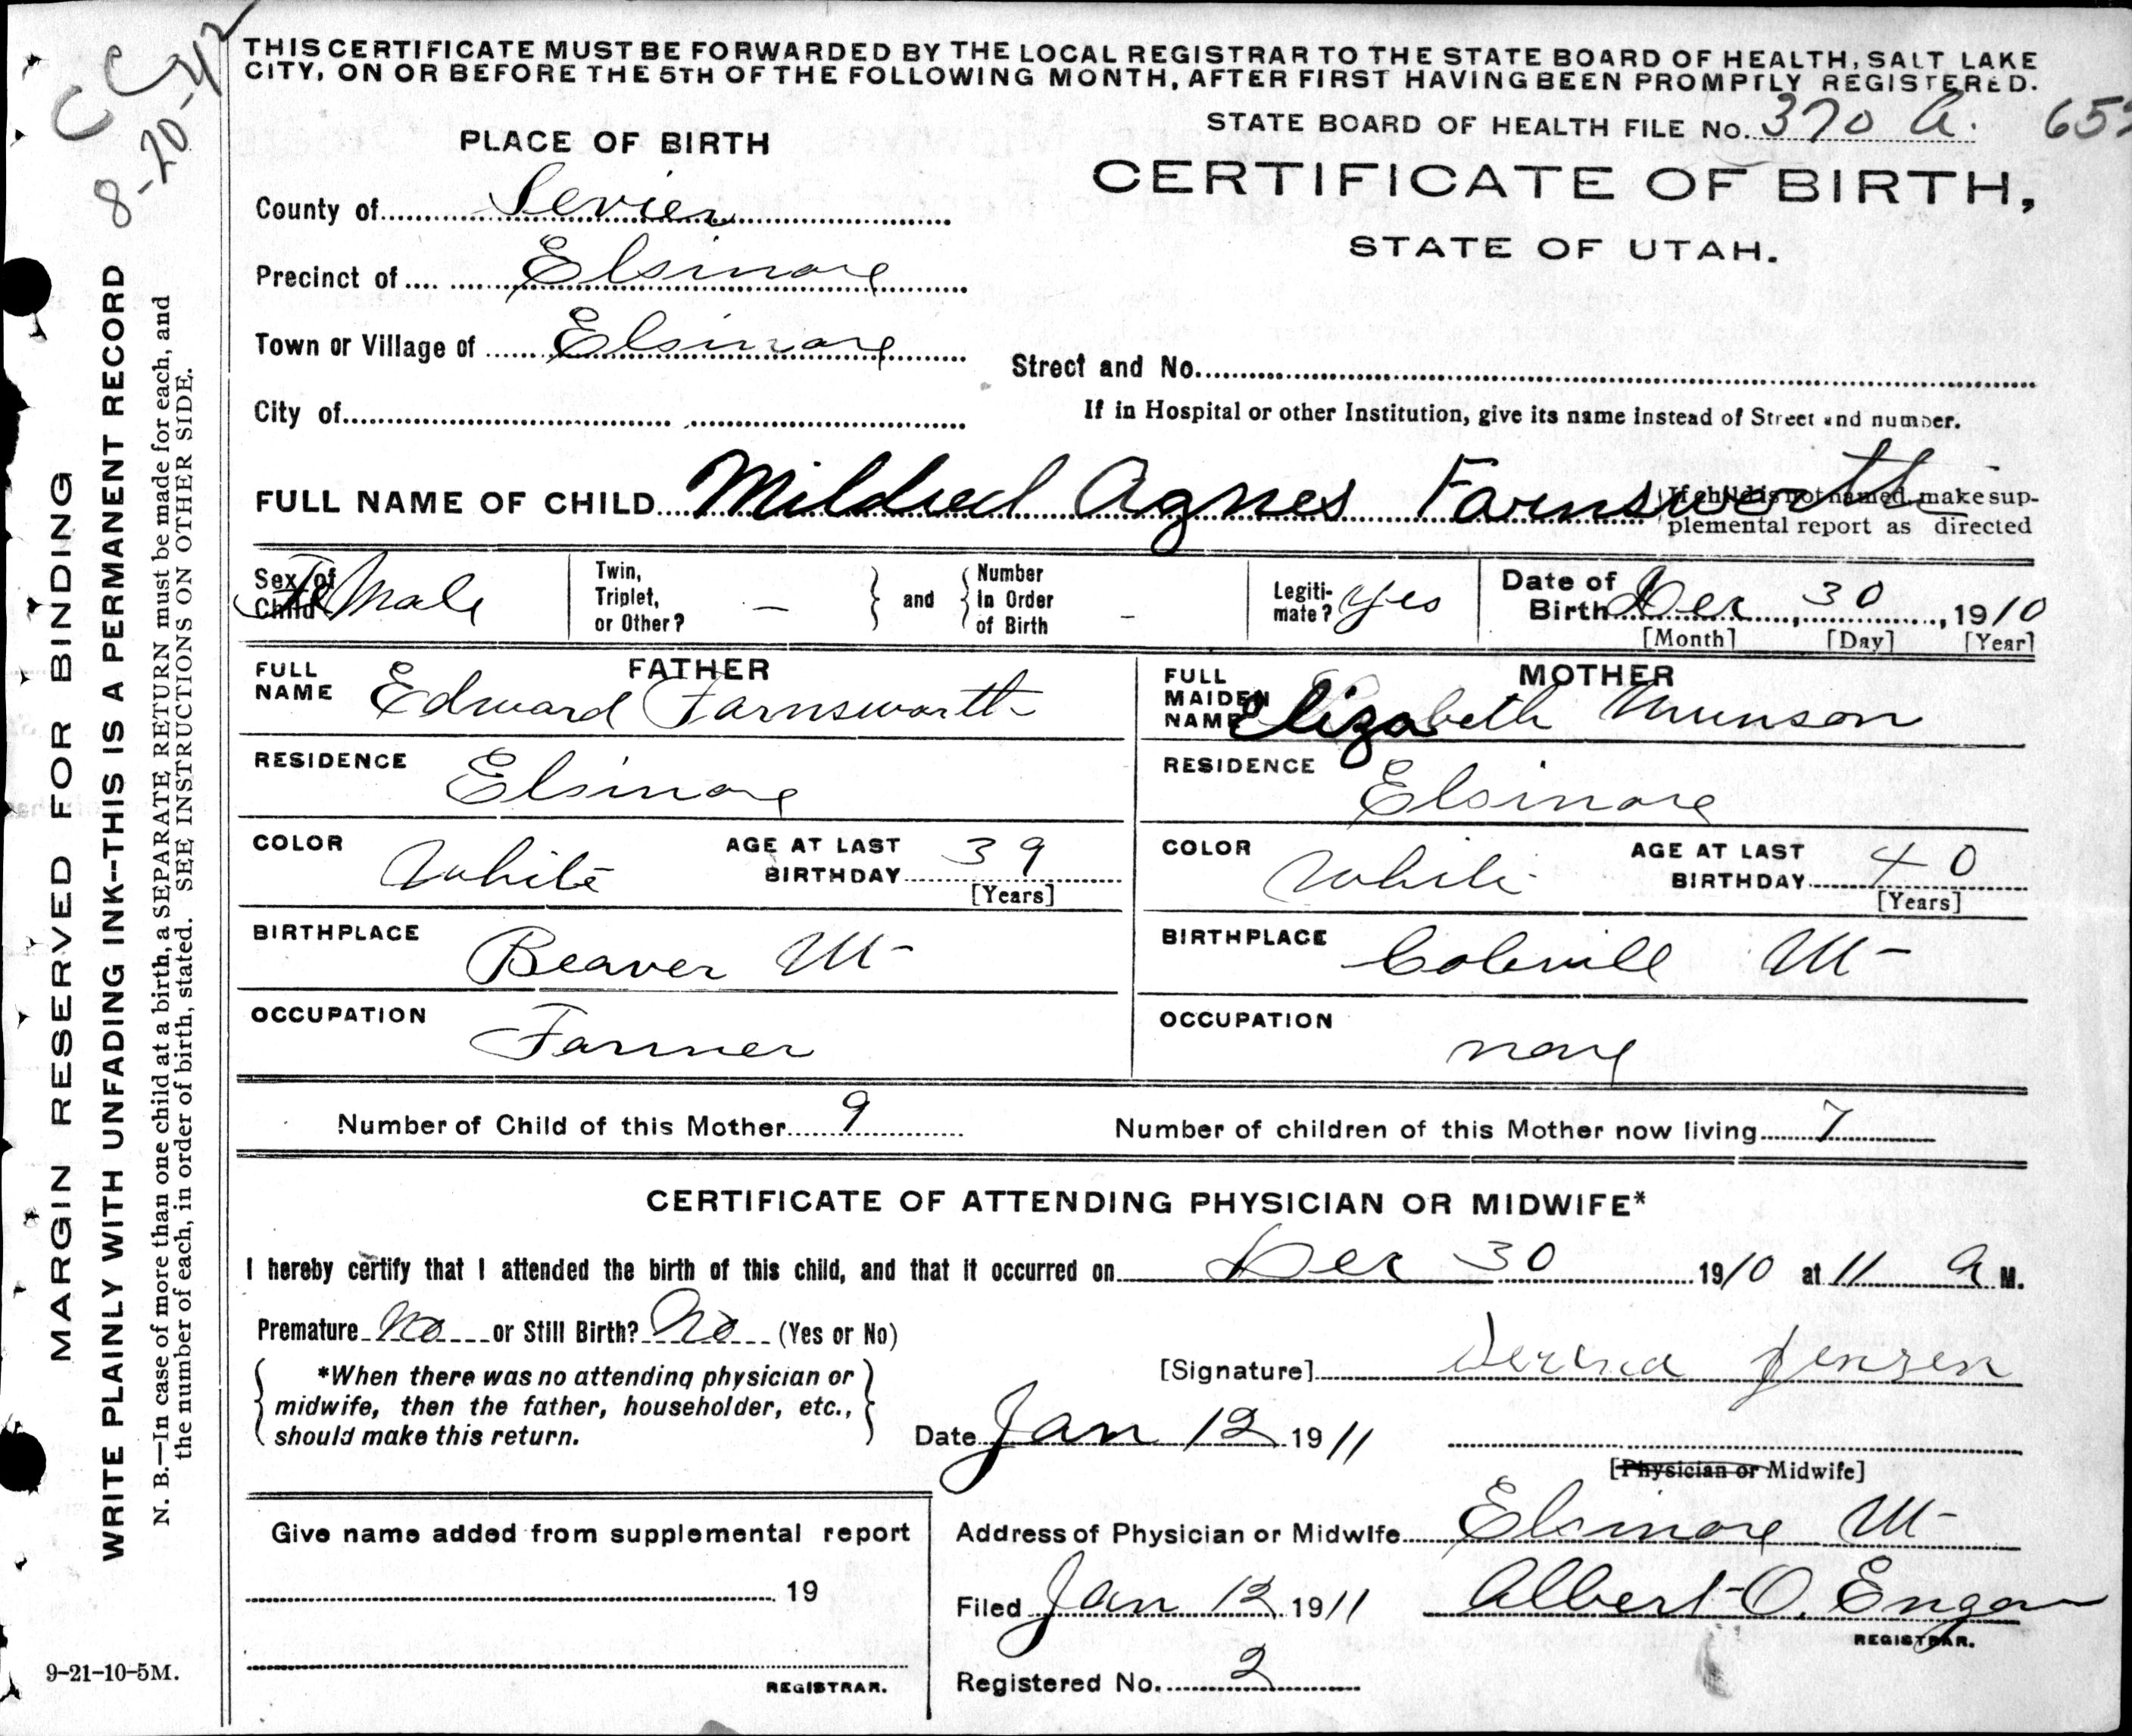 CC
8-20-42
THIS CERTIFICATE MUST BE FORWARDED BY THE LOCAL REGISTRAR TO THE STATE BOARD OF HEALTH, SALT LAKE
CITY, ON OR BEFORE THE 5TH OF THE FOLLOWING MONTH, AFTER FIRST HAVING BEEN PROMPTLY REGISTERED.
STATE BOARD OF HEALTH FILE No. 370 A. 65
PLACE OF BIRTH
CERTIFICATE OF BIRTH,
STATE OF UTAH.
County of Sevier
Precinct of Elsinore
Town or Village of Elsinore
Street and No.
City of
If in Hospital or other Institution, give its name instead of Street and number.
FULL NAME OF CHILD Mildred Agnes Farnsworth
If child is not named, make sup-
plemental report as directed
Sex of Child Female
Twin, Triplet, or Other? – and Number in Order of Birth –
Legiti-mate? Yes
Date of Birth Dec, 30, 1910
[Month] [Day] [Year]
FATHER
FULL NAME Edward Farnsworth
RESIDENCE Elsinore
COLOR White AGE AT LAST BIRTHDAY 39
[Years]
BIRTHPLACE Beaver Ut
OCCUPATION Farmer
MOTHER
FULL MAIDEN NAME Elizabeth Munson
RESIDENCE Elsinore
COLOR White AGE AT LAST BIRTHDAY 40
[Years]
BIRTHPLACE Colevill Ut
OCCUPATION none
Number of Child of this Mother 9 Number of children of this Mother now living 7
CERTIFICATE OF ATTENDING PHYSICIAN OR MIDWIFE*
I hereby certify that I attended the birth of this child, and that it occurred on Dec 30 1910 at 11 A M.
Premature No or Still Birth? No (Yes or No)
*When there was no attending physician or
midwife, then the father, householder, etc.,
should make this return.
[Signature] Jensen
Date Jan 12 1911
[Physician or Midwife]
Give name added from supplemental report
19
REGISTRAR.
Address of Physician or Midwife Elsinore Ut
Filed Jan 12 1911 Albert O.
REGISTRAR.
Registered No. 2
9-21-10-5M.
MARGIN RESERVED FOR BINDING
WRITE PLAINLY WITH UNFADING INK--THIS IS A PERMANENT RECORD
N. B.—In case of more than one child at a birth, a SEPARATE RETURN must be made for each, and
the number of each, in order of birth, stated. SEE INSTRUCTIONS ON OTHER SIDE.